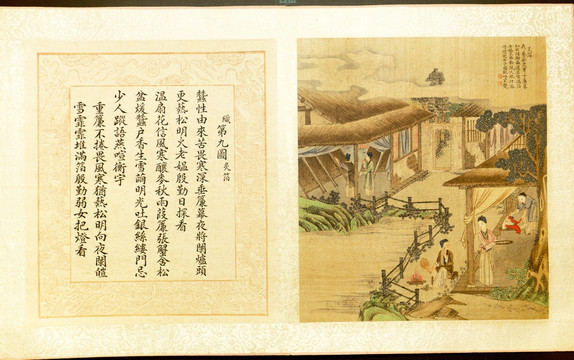 織
第九圖 炙箔
蠶性由來苦畏寒深垂簾幕夜將闌爐頭
更爇松明火老媼殷勤日探看
温扇花信風寒釀麥秋雨葭簾張蟹舍松
盆煖蠶户香生雪繭明光吐銀絲縷門忌
少人蹤語燕喧衡宇
重簾不捲畏風寒猶爇松明向夜闌皚
雪霏霏堆滿箔殷勤弱女把燈看